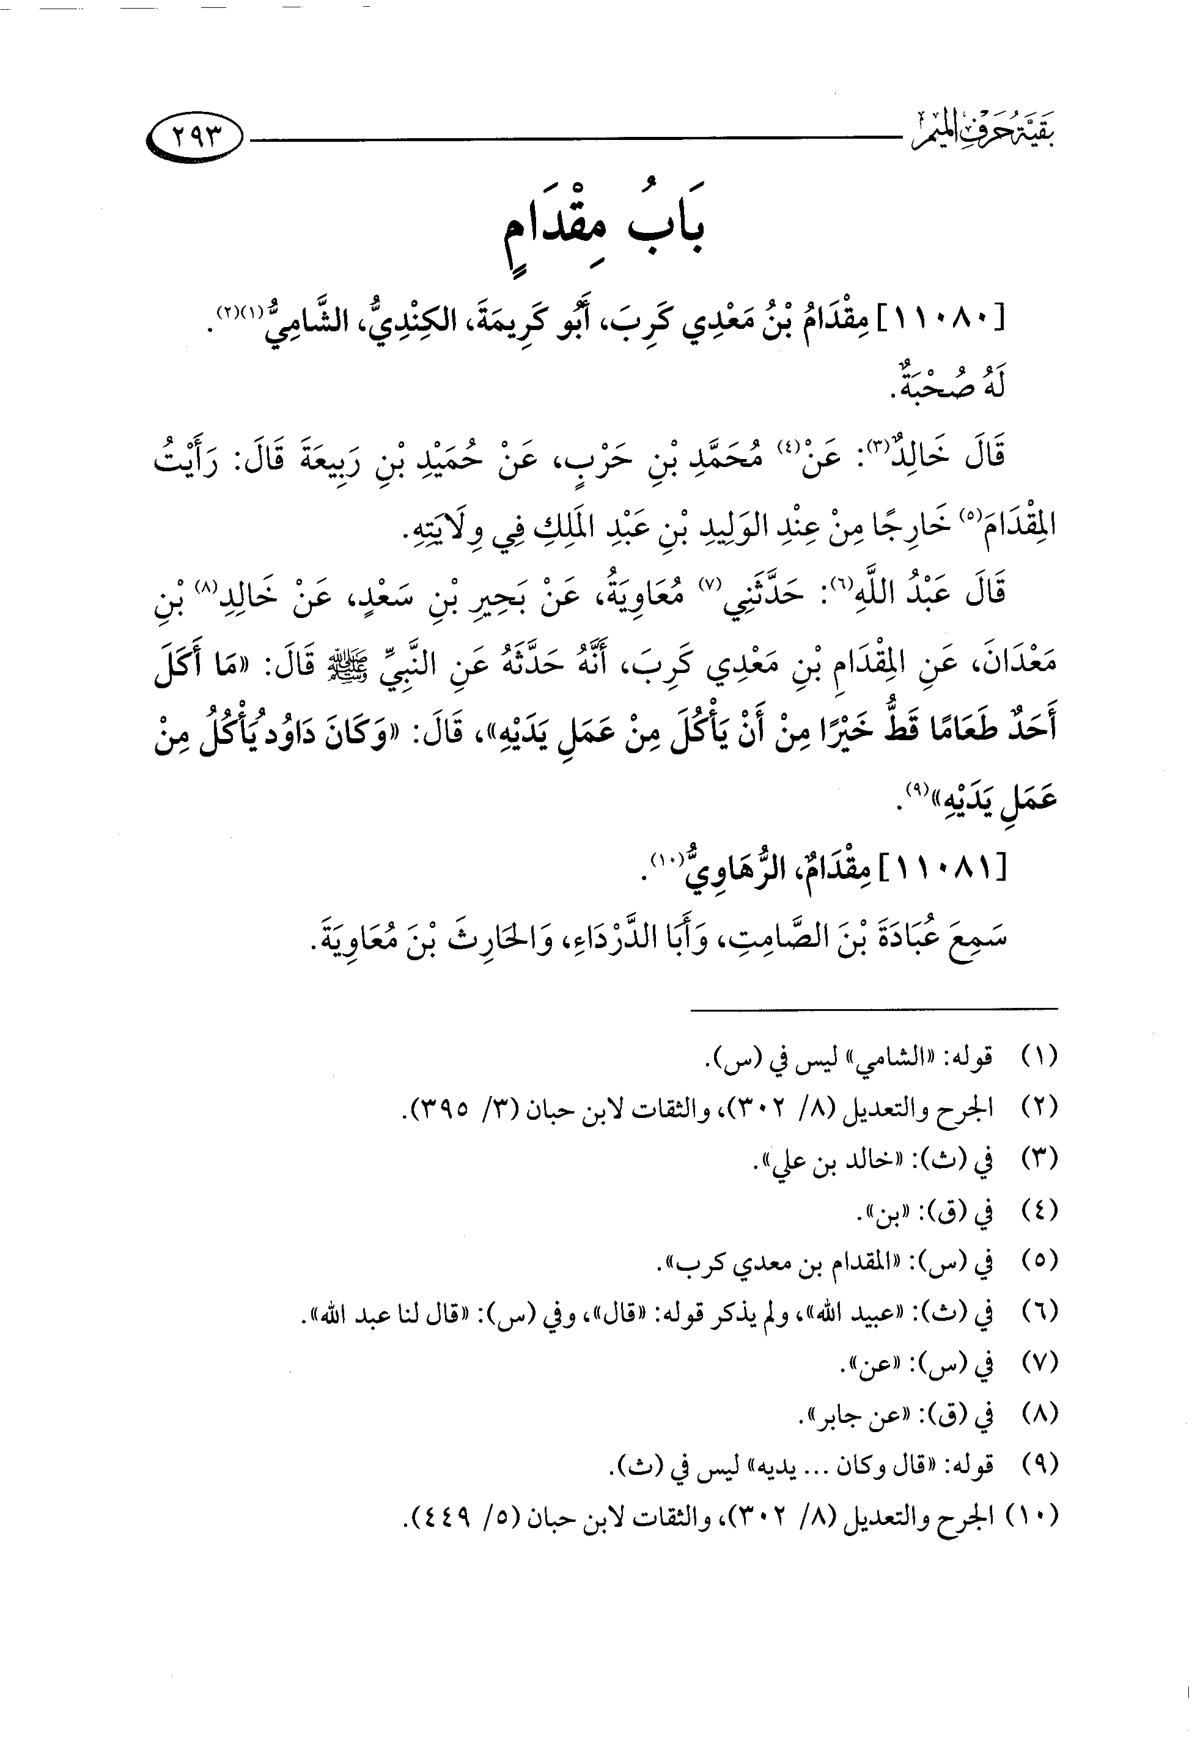 بَقِيَّةُ حَرْفِ الْمِيمِ
٢٩٣
بَابُ مِقْدَامٍ
[١١٠٨٠] مِقْدَامُ بْنُ مَعْدِي كَرِبَ، أَبُو كَرِيمَةَ، الكِنْدِيُّ، الشَّامِيُّ(١)(٢).
لَهُ صُحْبَةٌ.
قَالَ خَالِدٌ(٣): عَنْ(٤) مُحَمَّدِ بْنِ حَرْبٍ، عَنْ حُمَيْدِ بْنِ رَبِيعَةَ قَالَ: رَأَيْتُ
المِقْدَامَ(٥) خَارِجًا مِنْ عِنْدِ الوَلِيدِ بْنِ عَبْدِ المَلِكِ فِي وِلَايَتِهِ.
قَالَ عَبْدُ اللَّهِ(٦): حَدَّثَنِي(٧) مُعَاوِيَةُ، عَنْ بَحِيرِ بْنِ سَعْدٍ، عَنْ خَالِدِ(٨) بْنِ
مَعْدَانَ، عَنِ المِقْدَامِ بْنِ مَعْدِي كَرِبَ، أَنَّهُ حَدَّثَهُ عَنِ النَّبِيِّ ﷺ قَالَ: «مَا أَكَلَ
أَحَدٌ طَعَامًا قَطُّ خَيْرًا مِنْ أَنْ يَأْكُلَ مِنْ عَمَلِ يَدَيْهِ»، قَالَ: «وَكَانَ دَاوُدُ يَأْكُلُ مِنْ
عَمَلِ يَدَيْهِ»(٩).
[١١٠٨١] مِقْدَامٌ، الرُّهَاوِيُّ(١٠).
سَمِعَ عُبَادَةَ بْنَ الصَّامِتِ، وَأَبَا الدَّرْدَاءِ، وَالحَارِثَ بْنَ مُعَاوِيَةَ.
(١) قوله: «الشامي» ليس في (س).
(٢) الجرح والتعديل (٨/ ٣٠٢)، والثقات لابن حبان (٣/ ٣٩٥).
(٣) في (ث): «خالد بن علي».
(٤) في (ق): «بن».
(٥) في (س): «المقدام بن معدي كرب».
(٦) في (ث): «عبيد الله»، ولم يذكر قوله: «قال»، وفي (س): «قال لنا عبد الله».
(٧) في (س): «عن».
(٨) في (ق): «عن جابر».
(٩) قوله: «قال وكان ... يديه» ليس في (ث).
(١٠) الجرح والتعديل (٨/ ٣٠٢)، والثقات لابن حبان (٥/ ٤٤٩).